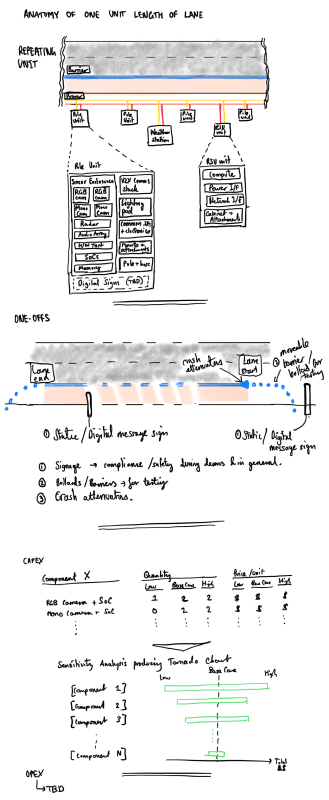 ANATOMY OF ONE UNIT LENGTH OF LANE
REPEATING
UNIT
Barrier
Barrier
Pole
Unit
Pole
Unit
Weather
station
Pole
unit
RSU
unit
Pole
unit
Pole Unit
Sensor Enclosures
RGB
Cam
RGB
Cam
Mono
Cam
Mono
Cam
Radar
Audio Array
SoCs
Memory
V2X Comms
stack
Lighting
pod
Pole + base
Digital Sign (TBD)
RSU unit
Compute
Power I/F
Network I/F
Cabinet +
Attachments
ONE-OFFS
Lane
end
crash
attenuators
Lane
start
③ moveable
barrier /
bollard for
testing
① Static / Digital message sign
① Static / Digital
message sign
① Signage → compliance / safety during demos & in general.
② Bollards / Barriers → for testing
③ Crash attenuators.
CAPEX
Component X
Quantity
Price / unit
Low Base Case High
Low Base Case High
RGB camera + SoC 1 2 2 $ $ $
Mono camera + SoC 0 2 2 $ $ $
Sensitivity Analysis producing Tornado Chart
Low
Base Case
High
[component 1]
[component 2]
[component 3]
[component N]
Total
$$
OPEX
↳ TBD